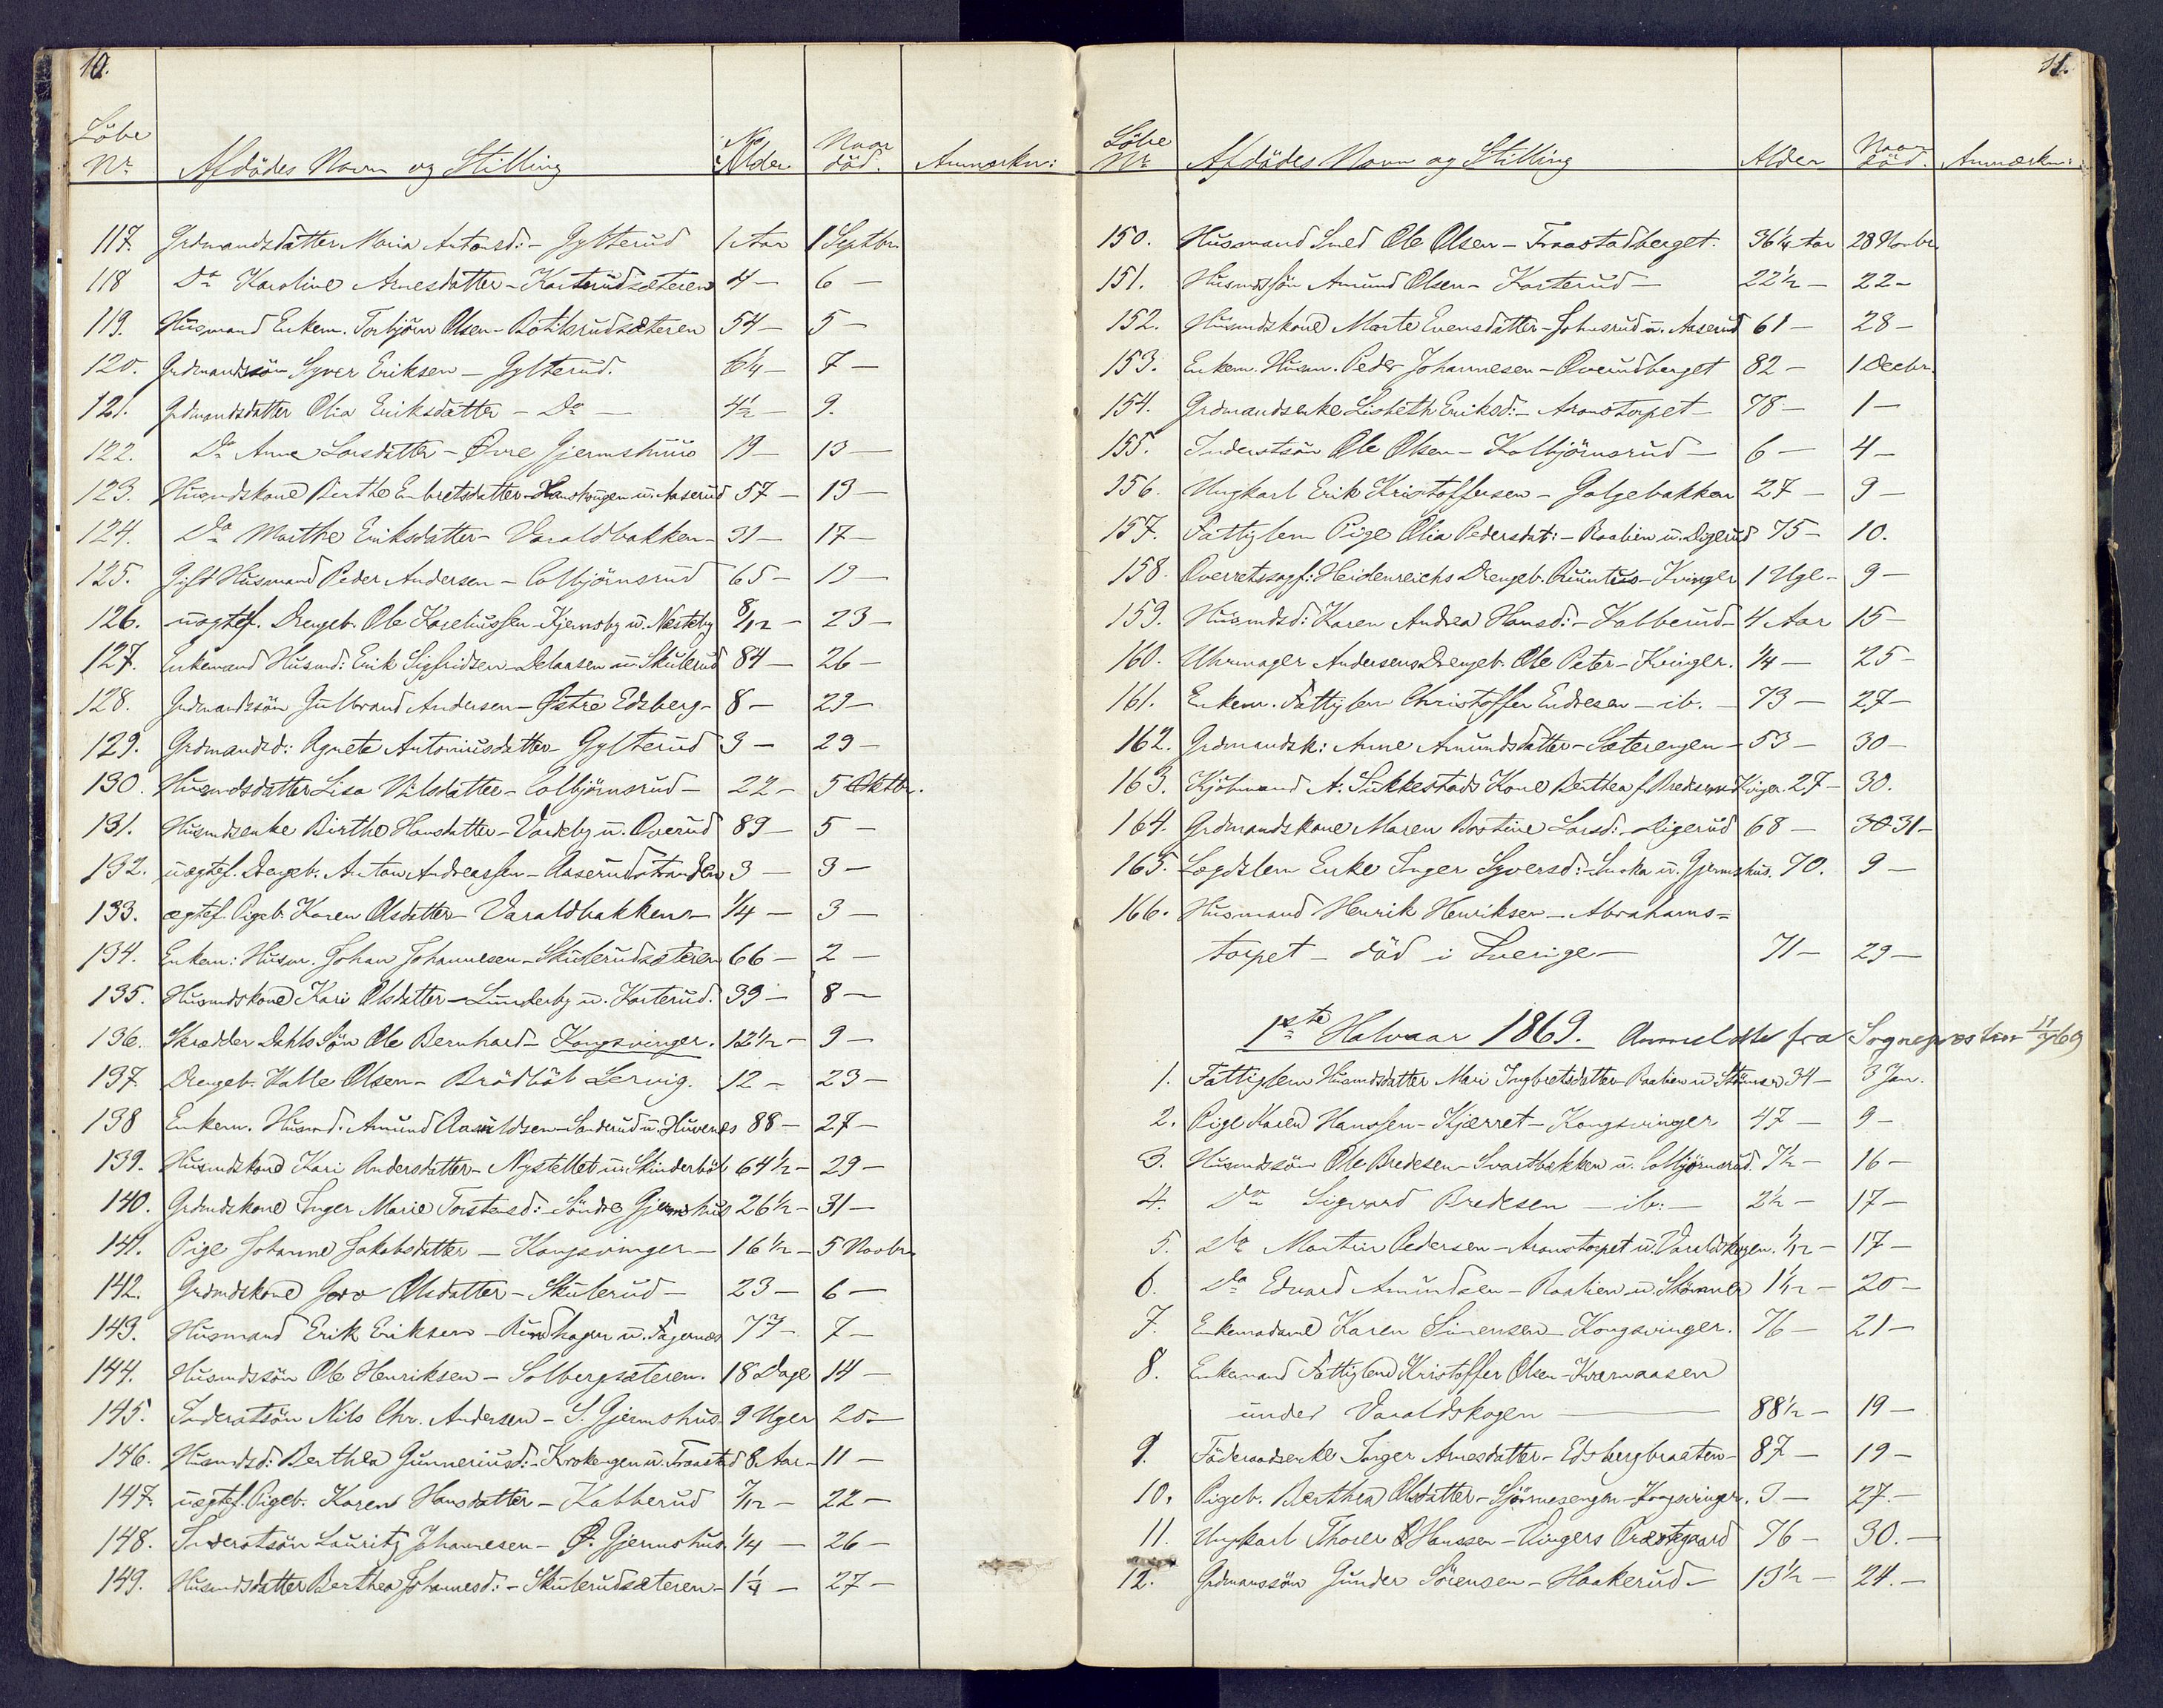 10.
Löbe
Nr. Afdödes Navn og Stilling Alder Naar död. Anmærkn:
117. Grdmandsdatter Maria Antonsd: - Gylterud 1 Aar 1 Septbr.
118 Do Karoline Arnesdatter - Karterudsæteren 4 - 6 -
119. Husmand Enkem. Torbjörn Olsen - Botilsrudsæteren 54 - 5 -
120. Grdmandssön Syver Eriksen - Gylterud. 6¼ - 7 -
121. Grdmandsdatter Olia Eriksdatter - Do - 4½ - 9.
122. Do Anne Larsdatter - Övre Gjermshuus 19 - 13 -
123. Husmdskone Berthe Embretsdatter - u. Aaserud 57 - 13 -
124. Do Marthe Eriksdatter - Varaldbakken - 31 - 17 -
125. Gift Husmand Peder Andersen - Colbjörnsrud 65 - 19 -
126. uægtef. Drengeb. Ole Kareliussen - Kjernsby u. Nesteby 8/12 - 23 -
127. Enkemand Husmd: Erik Sigfridsen - u Skulerud 84 - 26 -
128. Grdmandssön Gulbrand Andersen - Östre Edsberg - 8 - 29 -
129. Grdmandsd: Agnete Antoniusdatter - Gylterud 3 - 29 -
130. Husmdsdatter Lisa Nilsdatter - Colbjörnsrud - 22 - 5 Oktbr.
131. Husmdsenke Birthe Hansdatter - Vardeby u. Overud 89 - 5 -
132. uægtef. Drengeb. Anton Andreassen - Aaserudstranden 3 - 3 -
133. ægtef. Pigeb. Karen Olsdatter - Varaldbakken - ¼ - 3 -
134. Enkem: Husm. Johan Johannesen - Skulerudsæteren 66 - 2 -
135. Husmdskone Kari Olsdatter - Lunderby u. Karterud. 39 - 8 -
136. Skrædder Dahls Sön Ole Bernhard - Kongsvinger. 12½ - 9 -
137. Drengeb. Kalle Olsen - Brödböl Lervig. 12 - 23 -
138 Enkem. Husmd. Amund Aasuldsen - Sanderud u. Huvernes 88 - 27 -
139. Husmdskone Kari Andersdatter - Nystellet u. Skinderböl 64½ - 29 -
140. Grdmdskone Inger Marie Torstensd: - Söndre Gjermshus 26½ - 31 -
141. Pige Johanne Jakobsdatter - Kongsvinger - 16½ - 5 Novbr.
142. Grdmdskone Goro Olsdatter - Skulerud - 23 - 6 -
143. Husmand Erik Eriksen - Rundhagen u. Fagernæs 77 - 7 -
144. Husmdssön Ole Henriksen - Solbergsæteren. 18 Dage 14 -
145. Inderstsön Nils Chr. Andersen - S. Gjermshus. 9 Uger 20 -
146. Husmdsd: Berthea Gunneriusd: - Krokengen u. Fraastad 8 Aar - 11 -
147. uægtef. Pigeb. Karen Hansdatter - Kabberud 7/12 - 22 -
148. Inderstsön Lauritz Johannesen - Ö. Gjermshus ¼ - 26 -
149. Husmdsdatter Berthea Johannesd: - Skulerudsæteren - 1¼ - 27 -
11.
Löbe
Nr. Afdödes Navn og Stilling Alder Naar död. Anmærkn:
150. Husmand Smed Ole Olsen - Fraastadberget. 36¼ Aar 28 Novbr.
151. Husmdssön Amund Olsen - Karterud - 22½ - 22 -
152. Husmdskone Marte Evensdatter - Johnsrud u. Aaserud 61 - 28 -
153. Enkem. Husm. Peder Johannesen - Overudberget 82 - 1 Decbr.
154. Grdmandsenke Lisbeth Eriksd: - Aronstorpet - 78 - 1 -
155. Inderstsön Ole Olsen - Kolbjörnsrud - 6 - 4 -
156. Ungkarl Erik Kristoffersen - Galgebakken 27 - 9 -
157. Fattiglem Pige Olia Pedersdat: - Raalien u. Digerud 75 - 10.
158. Overretssagf: Heidenreichs Drengeb. Quintus - Kvinger 1 Uge - 9 -
159. Husmdsd: Karen Andrea Hansd: - Kabberud - 4 Aar 15 -
160. Uhrmager Andersens Drengeb. Ole Peter - Kvinger. ¼ - 25 -
161. Enkem. Fattiglem Christoffer Endresen - ib. - 73 - 27 -
162. Grdmandsk: Anne Amundsdatter - Sæterengen - 53 - 30 -
163. Kjöbmand A. Sikkestads Kone Berthea f. Kvinger. 27 - 30.
164. Grdmandskone Maren Bostine Larsd: - Digerud 68 - 30 31 -
165. Lægdslem Enke Inger Syversd: - u. Gjermshus. 70. 9 -
166. Husmand Henrik Henriksen - Abrahams=
torpet - död i Sverige - 71 - 29 -
1ste Halvaar 1869. Anmeldte fra Sognepræsten 11/7 69
1. Fattiglem Husmdsdatter Mari Ingbretsdatter - Raalien u 34 - 3 Jan.
2. Pige Karen Hanssen - Kjærret - Kongsvinger 47 - 9 -
3. Husmdssön Ole Bredesen - Svartbakken u. Colbjörnsrud. 7½ - 16 -
4. Do Sigvard Bredesen - ib: - 2½ - 17 -
5. Do Martin Pedersen - Aronstorpet u. Varaldskogen. 1/12 - 17 -
6. Do Edvard Amundsen - Raalien u. 1 1/12 - 20 -
7. Enkemadame Karen Sörensen - Kongsvinger. 76 - 21 -
8. Enkemand Fattiglem Kristoffer Olsen - Kværnaasen
under Varaldskogen - 88½ - 19 -
9. Föderaadsenke Inger Arnesdatter - Edsbergbraaten - 87 - 19 -
10. Pigeb. Berthea Olsdatter - Kongsvinger. 3 - 27. -
11. Ungkarl Thorer Hanssen - Vingers Præstegaard 76 - 30. -
12. Grdmanssön Gunder Sörensen - Haakerud - 13½ - 24. -